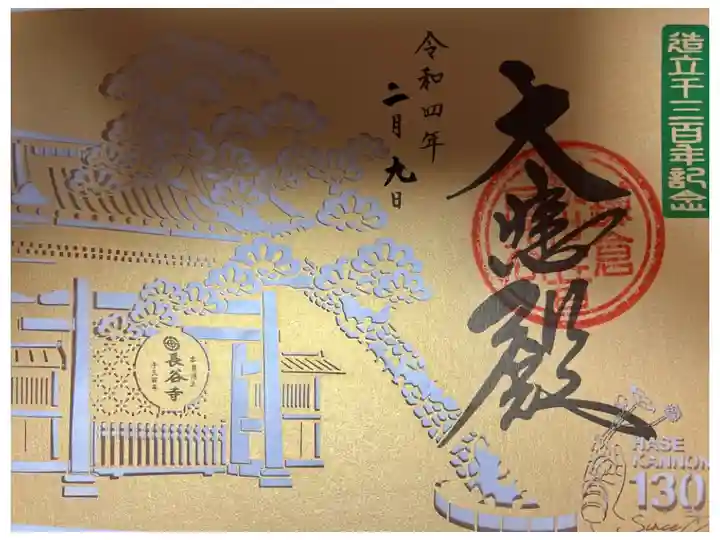 造立千三百年記念
大悲殿
令和四年
二月九日
長谷寺
HASE
KANNON
130
Since